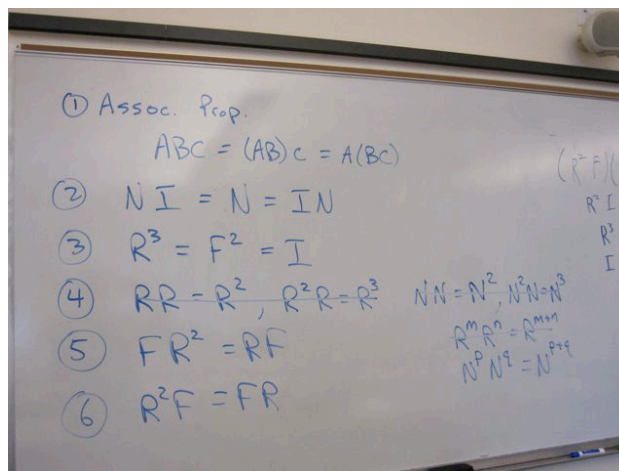 ① Assoc. Prop.
ABC = (AB)C = A(BC)
② NI = N = IN
③ R³ = F² = I
④ RR = R², R²R = R³ NN = N², N²N = N³
RᵐRⁿ = Rᵐ⁺ⁿ
NᵖN^q = N^(p+q)
⑤ FR² = RF
⑥ R²F = FR
(R²F)(
R²I
R³
I